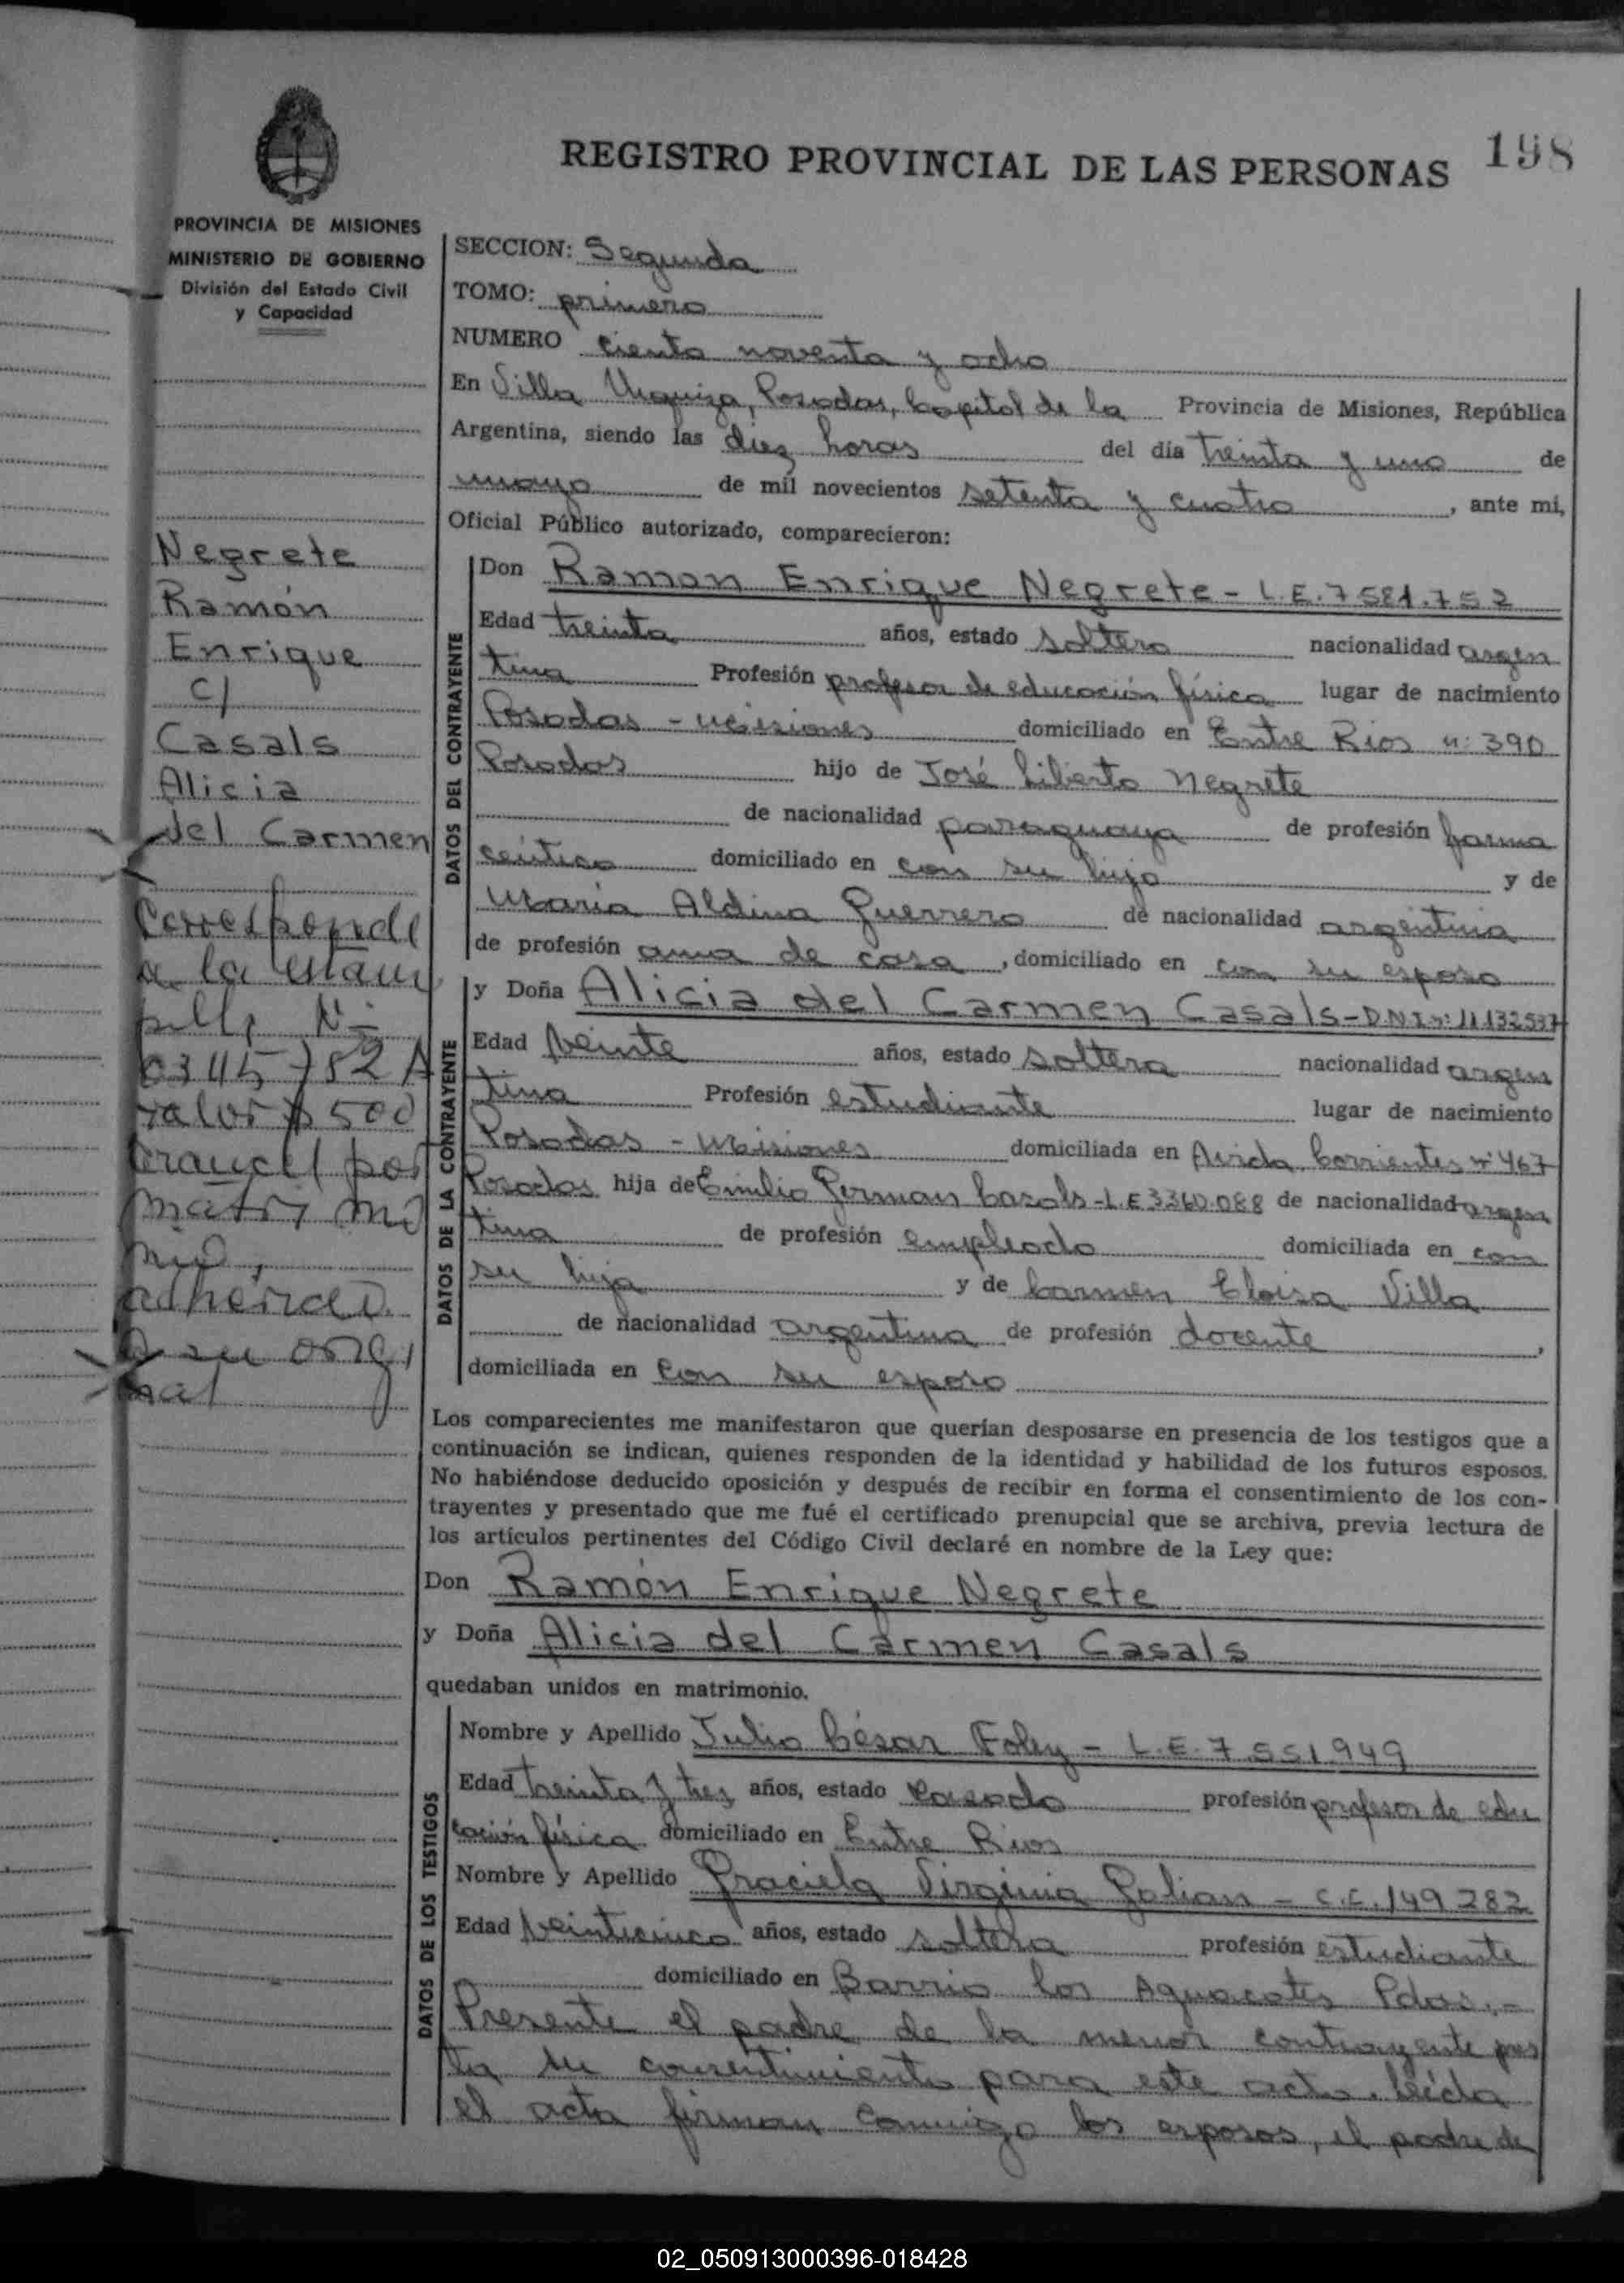 198
REGISTRO PROVINCIAL DE LAS PERSONAS
PROVINCIA DE MISIONES
MINISTERIO DE GOBIERNO
División del Estado Civil
y Capacidad
Negrete
Ramón
Enrique
c/
Casals
Alicia
del Carmen
Corresponde
a la estam
pilla Nº
03115782 A
valor $ 500
arancel por
matri mo
nio,
adherida
a su origi
nal
SECCION: Segunda
TOMO: primero
NUMERO ciento noventa y ocho
En Villa Urquiza, Posadas, Capital de la Provincia de Misiones, República
Argentina, siendo las diez horas del día treinta y uno de
mayo de mil novecientos setenta y cuatro, ante mi,
Oficial Público autorizado, comparecieron:
DATOS DEL CONTRAYENTE
Don Ramon Enrique Negrete - L.E. 7581.752
Edad treinta años, estado soltero nacionalidad argen
tina Profesión profesor de educación física lugar de nacimiento
Posadas - Misiones domiciliado en Entre Rios n: 390
Posadas hijo de José Liberto Negrete
de nacionalidad paraguaya de profesión farma
céutico domiciliado en con su hijo y de
Maria Aldina Guerrero de nacionalidad argentina
de profesión ama de casa, domiciliado en con su esposo
DATOS DE LA CONTRAYENTE
y Doña Alicia del Carmen Casals - D.N.I. n: 11132537
Edad veinte años, estado soltera nacionalidad argen
tina Profesión estudiante lugar de nacimiento
Posadas - Misiones domiciliada en Avda. Corrientes nº 467
Posadas hija de Emilio German Casals - L.E 3360.088 de nacionalidad argen
tina de profesión empleado domiciliada en con
su hija y de Carmen Eloisa Villa
de nacionalidad argentina de profesión docente,
domiciliada en con su esposo
Los comparecientes me manifestaron que querían desposarse en presencia de los testigos que a
continuación se indican, quienes responden de la identidad y habilidad de los futuros esposos.
No habiéndose deducido oposición y después de recibir en forma el consentimiento de los con-
trayentes y presentado que me fué el certificado prenupcial que se archiva, previa lectura de
los artículos pertinentes del Código Civil declaré en nombre de la Ley que:
Don Ramón Enrique Negrete
y Doña Alicia del Carmen Casals
quedaban unidos en matrimonio.
DATOS DE LOS TESTIGOS
Nombre y Apellido Julio César Foley - L.E. 7.551.949
Edad treinta y tres años, estado casado profesión profesor de edu
cación física domiciliado en Entre Rios
Nombre y Apellido Graciela Virginia Galian - C.C. 149.282
Edad veinticinco años, estado soltera profesión estudiante
domiciliado en Barrio los Aguacates Pdas.-
Presente el padre de la menor contrayente pres
ta su consentimiento para este acto. Leída
el acta firman conmigo los esposos, el padre de
02_050913000396-018428